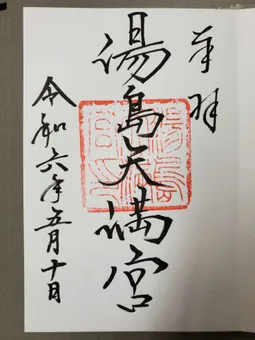 奉拝
湯島天満宮
令和六年五月十日